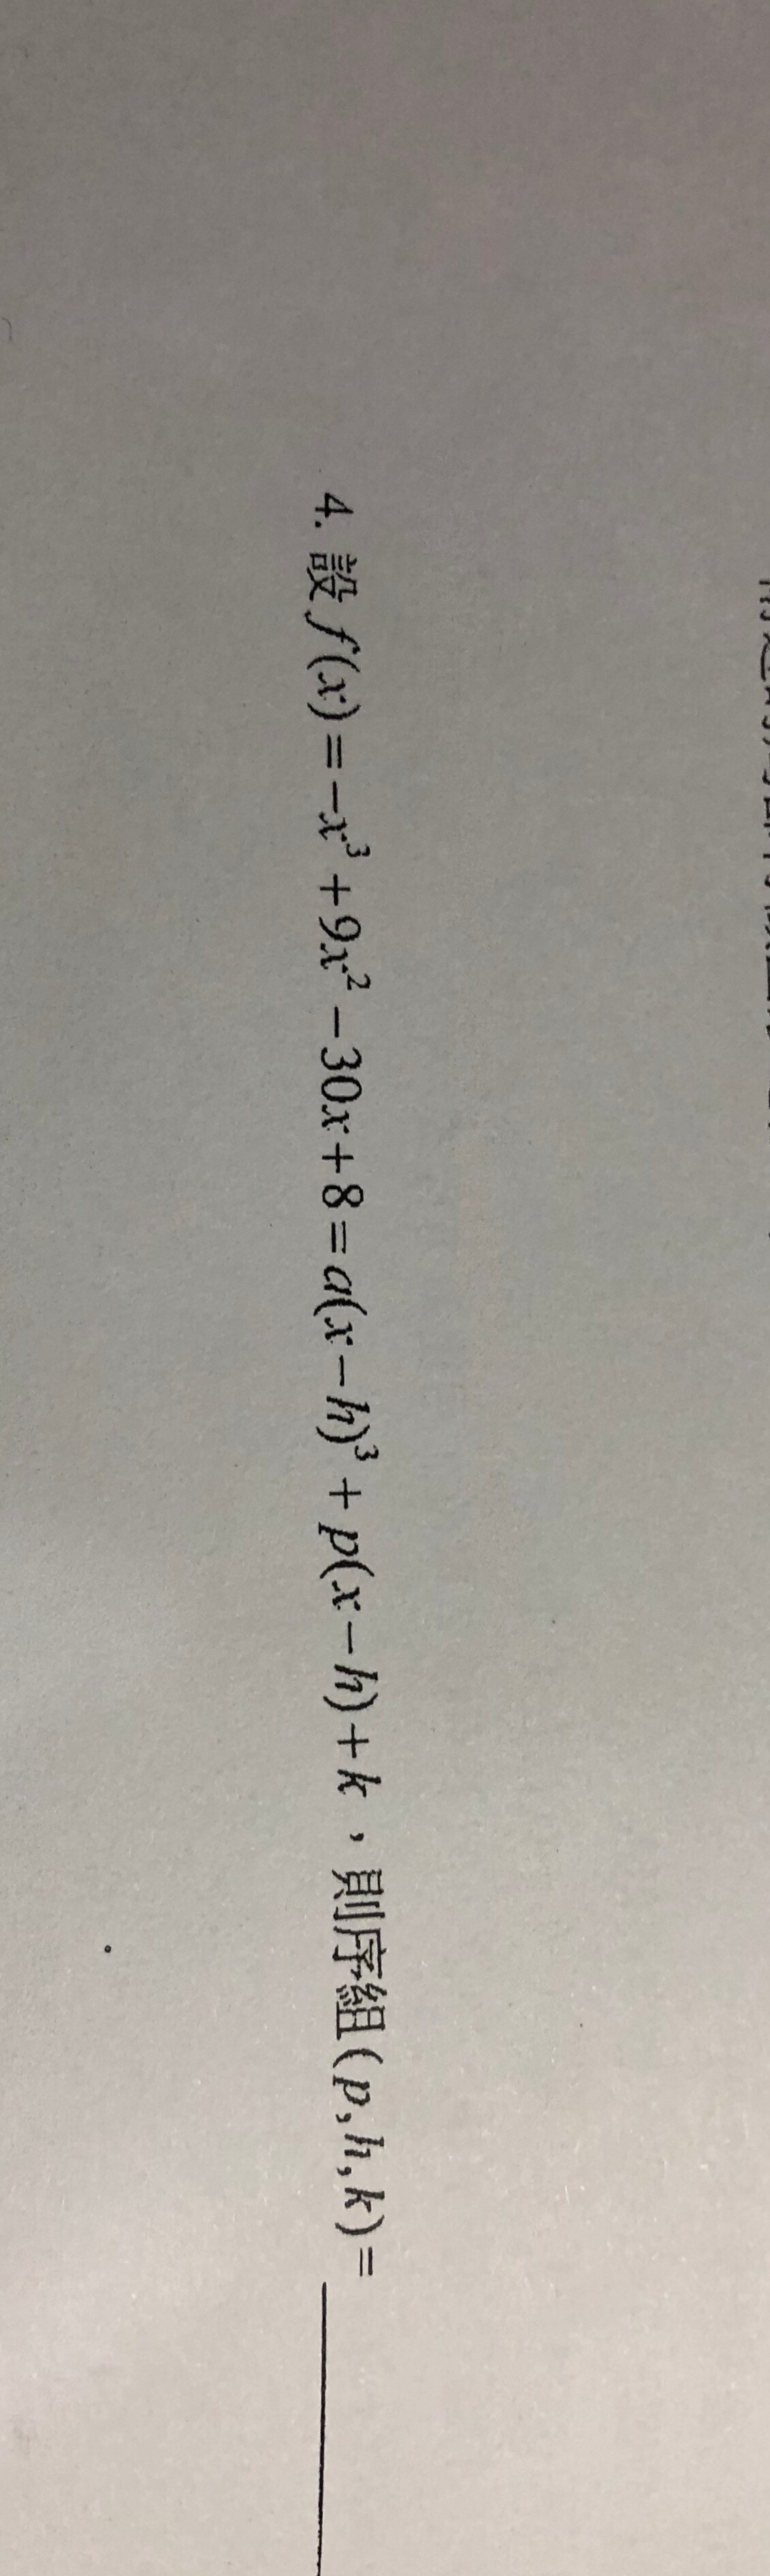 4. 設 f(x)=-x³+9x²-30x+8=a(x-h)³+p(x-h)+k，則序組(p,h,k)=